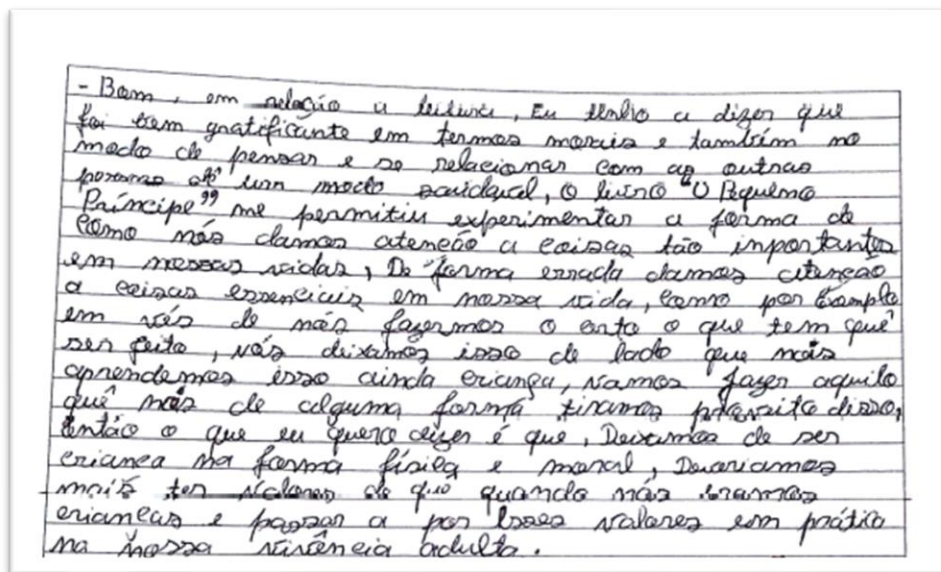 - Bom, em relação a leitura, Eu tenho a dizer que
foi bem gratificante em termos morais e também no
modo de pensar e se relacionar com as outras
pessoas de um modo saudavel, o livro "O Pequeno
Príncipe" me permitiu experimentar a forma de
como nós damos atenção a coisas tão importantes
em nossas vidas, De forma errada damos atenção
a coisas essenciais em nossa vida, como por Exemplo
em vés de nós fazermos o certo o que tem quê
ser feito, nós deixamos isso de lado que nós
aprendemos isso ainda criança, vamos fazer aquilo
quê nós de alguma forma tiramos proveito disso,
então o que eu quero dizer é que, Deixamos de ser
criança na forma física e moral, Deveriamos
mais ter Valores do que quando nós eramos
crianças e passar a por Esses valores em prática
na nossa vivência adulta.